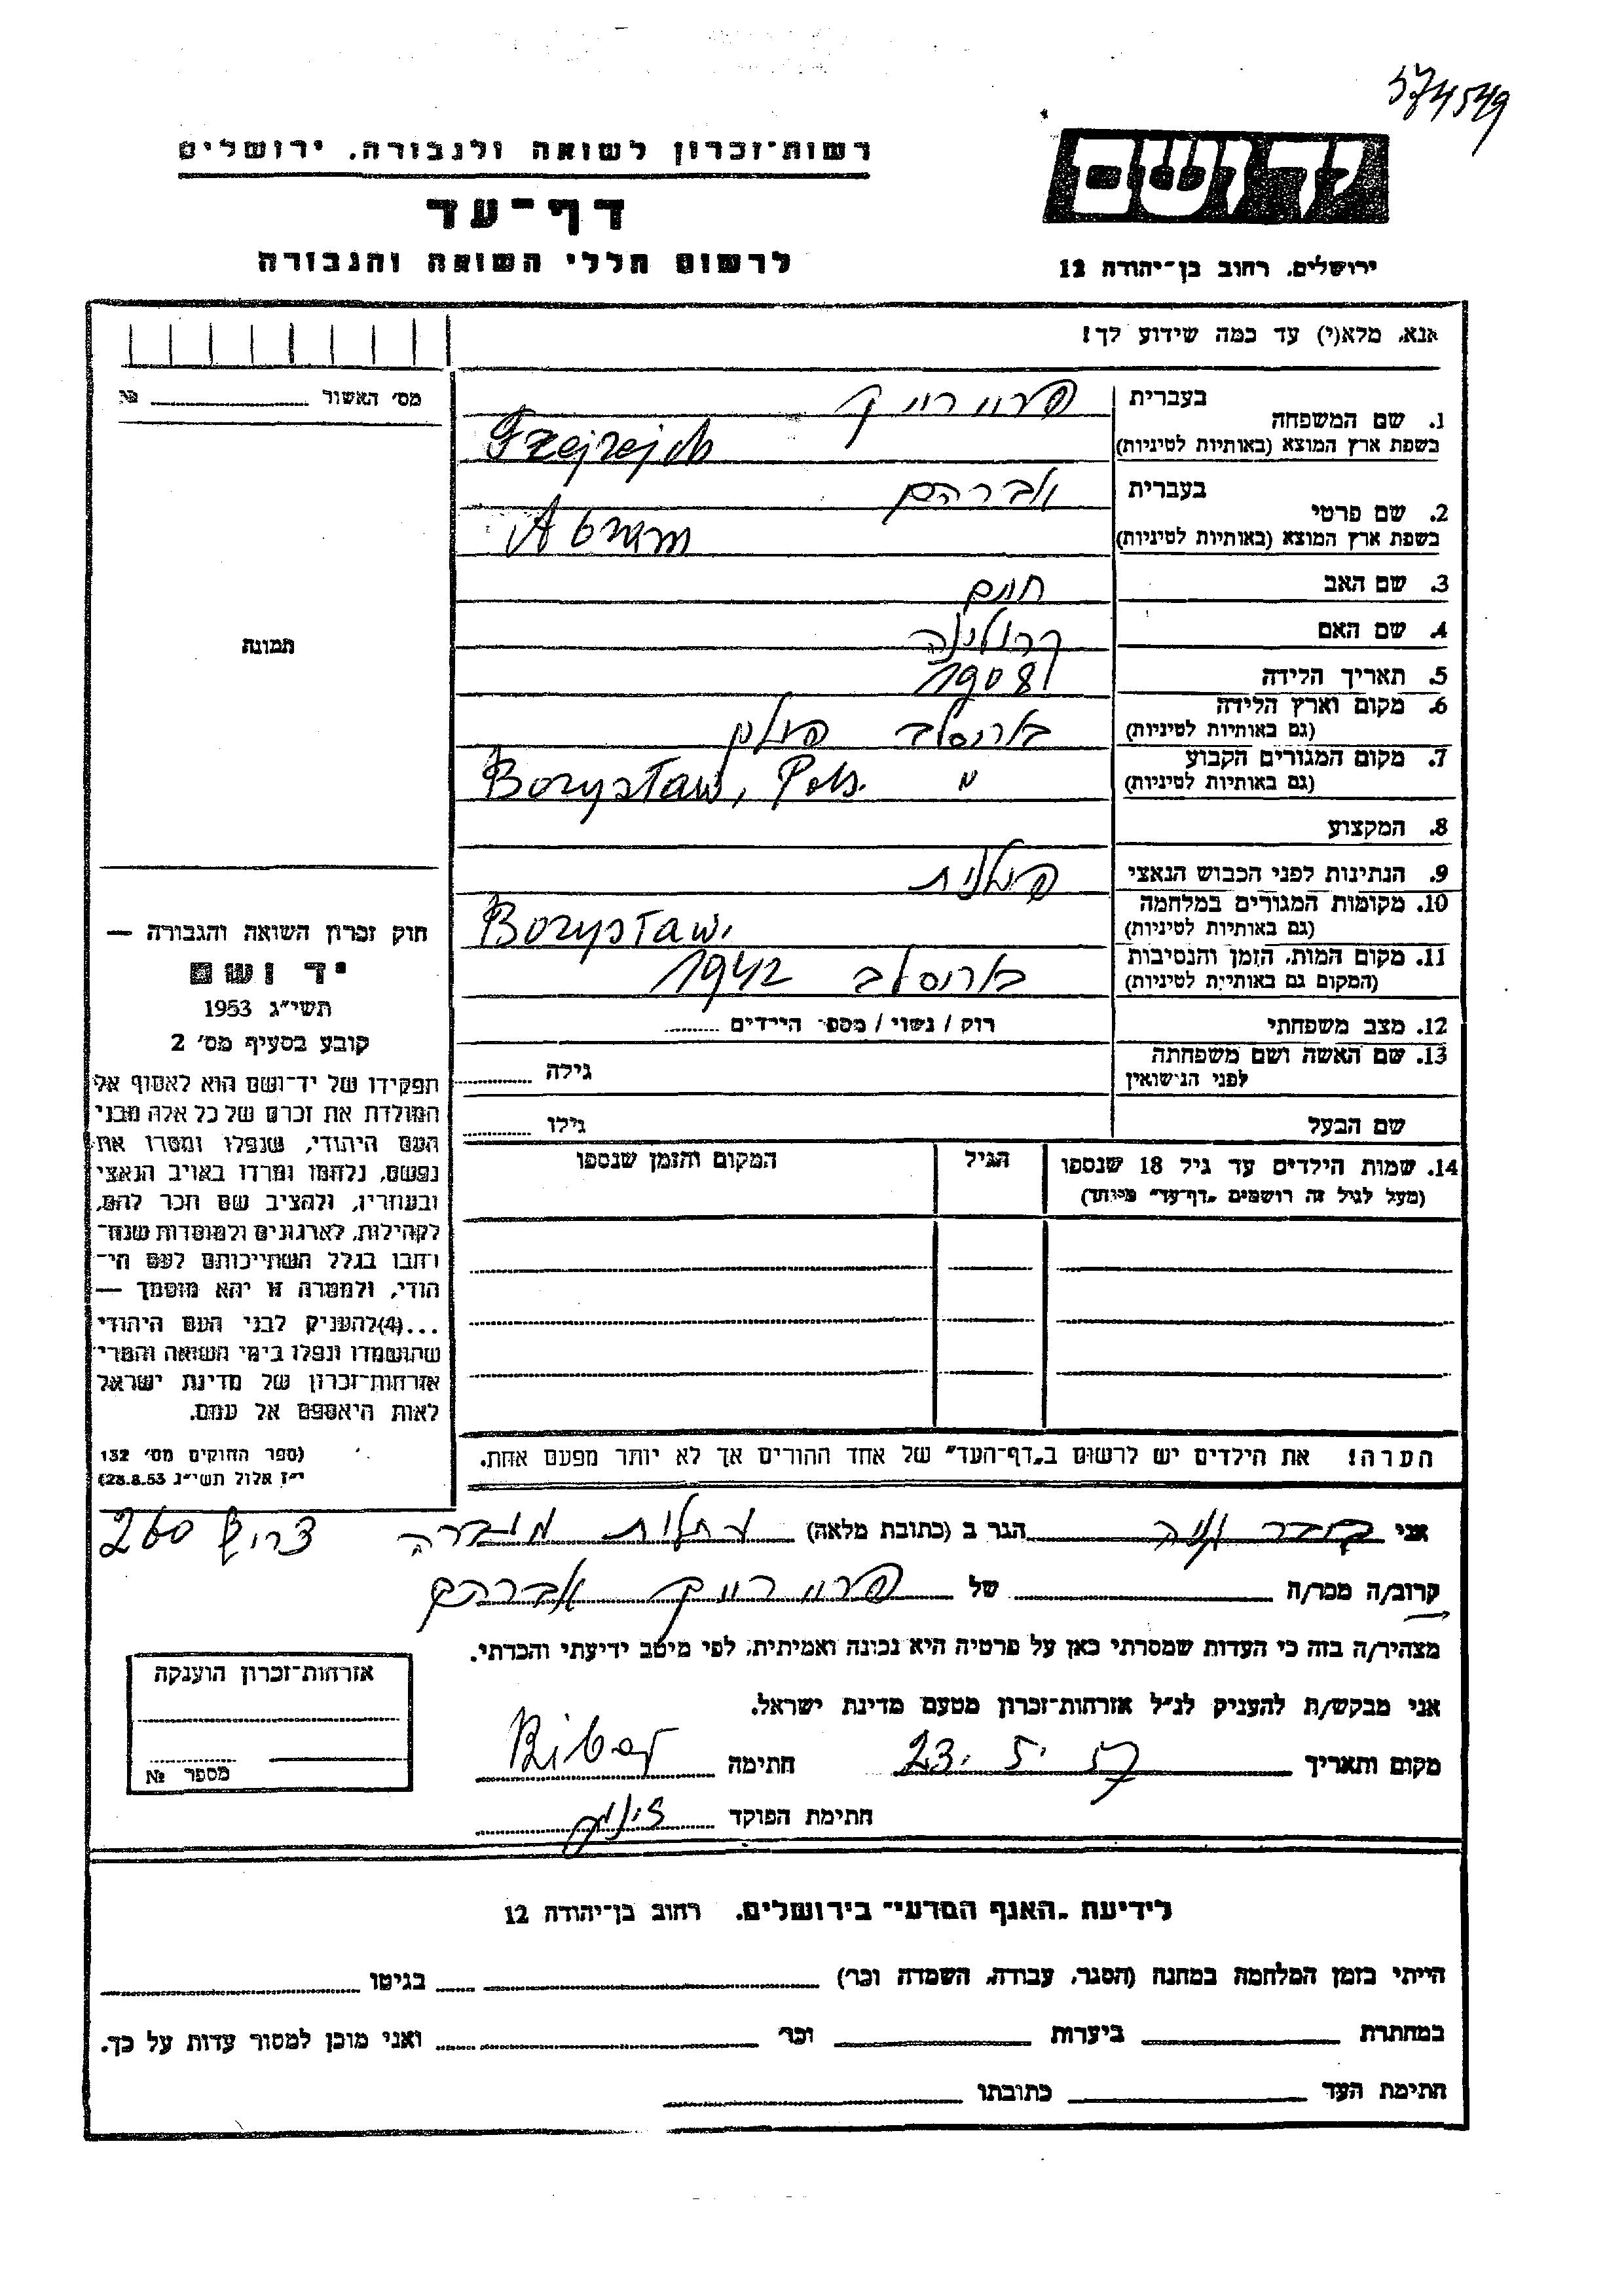 574549
רשות־זכרון לשואה ולגבורה, ירושלים
יד ושם
דף־עד
לרשום חללי השואה והגבורה
ירושלים, רחוב בן־יהודה 12
אנא, מלא(י) עד כמה שידוע לך!
מס׳ האשור №
תמונה
1. שם המשפחה
בעברית פריירייך
בשפת ארץ המוצא (באותיות לטיניות) Frejrejch
2. שם פרטי
בעברית אברהם
בשפת ארץ המוצא (באותיות לטיניות) Abram
3. שם האב חיים
4. שם האם קרולינה
5. תאריך הלידה 1908
6. מקום וארץ הלידה בוריסלב פולין
(גם באותיות לטיניות)
7. מקום המגורים הקבוע "
(גם באותיות לטיניות) Borysław, Pols.
8. המקצוע
9. הנתינות לפני הכבוש הנאצי פולנית
10. מקומות המגורים במלחמה
(גם באותיות לטיניות) Borysław.
11. מקום המות, הזמן והנסיבות בוריסלב 1942
(המקום גם באותיות לטיניות)
12. מצב משפחתי רוק / נשוי / מספר הילדים
13. שם האשה ושם משפחתה גילה
לפני הנישואין
שם הבעל גילו
14. שמות הילדים עד גיל 18 שנספו הגיל המקום והזמן שנספו
(מעל לגיל זה רושמים „דף־עד” מיוחד)
הערה! את הילדים יש לרשום ב„דף־העד” של אחד ההורים אך לא יותר מפעם אחת.
חוק זכרון השואה והגבורה —
יד ושם
תשי״ג 1953
קובע בסעיף מס׳ 2
תפקידו של יד־ושם הוא לאסוף אל
המולדת את זכרם של כל אלה מבני
העם היהודי, שנפלו ומסרו את
נפשם, נלחמו ומרדו באויב הנאצי
ובעוזריו, ולהציב שם וזכר להם,
לקהילות, לארגונים ולמוסדות שנח־
רבו בגלל השתייכותם לעם הי־
הודי, ולמטרה זו יהא מוסמך —
...(4)להעניק לבני העם היהודי
שהושמדו ונפלו בימי השואה והמרי
אזרחות־זכרון של מדינת ישראל
לאות היאספם אל עמם.
(ספר החוקים מס׳ 132
י״ז אלול תשי״ג 28.8.53)
אני הגר ב (כתובת מלאה) עתלית מעברה צריף 260
קרוב/ה מכר/ה של פריירייך אברהם
מצהיר/ה בזה כי העדות שמסרתי כאן על פרטיה היא נכונה ואמיתית, לפי מיטב ידיעתי והכרתי.
אני מבקש/ת להעניק לנ״ל אזרחות־זכרון מטעם מדינת ישראל.
מקום ותאריך 23.5.57 חתימה Biber
חתימת הפוקד
אזרחות־זכרון הוענקה
מספר №
לידיעת „האגף המדעי” בירושלים, רחוב בן־יהודה 12
הייתי בזמן המלחמה במחנה (הסגר, עבודה, השמדה וכר) בגיטו
במחתרת ביערות וכר ואני מוכן למסור עדות על כך.
חתימת העד כתובתו